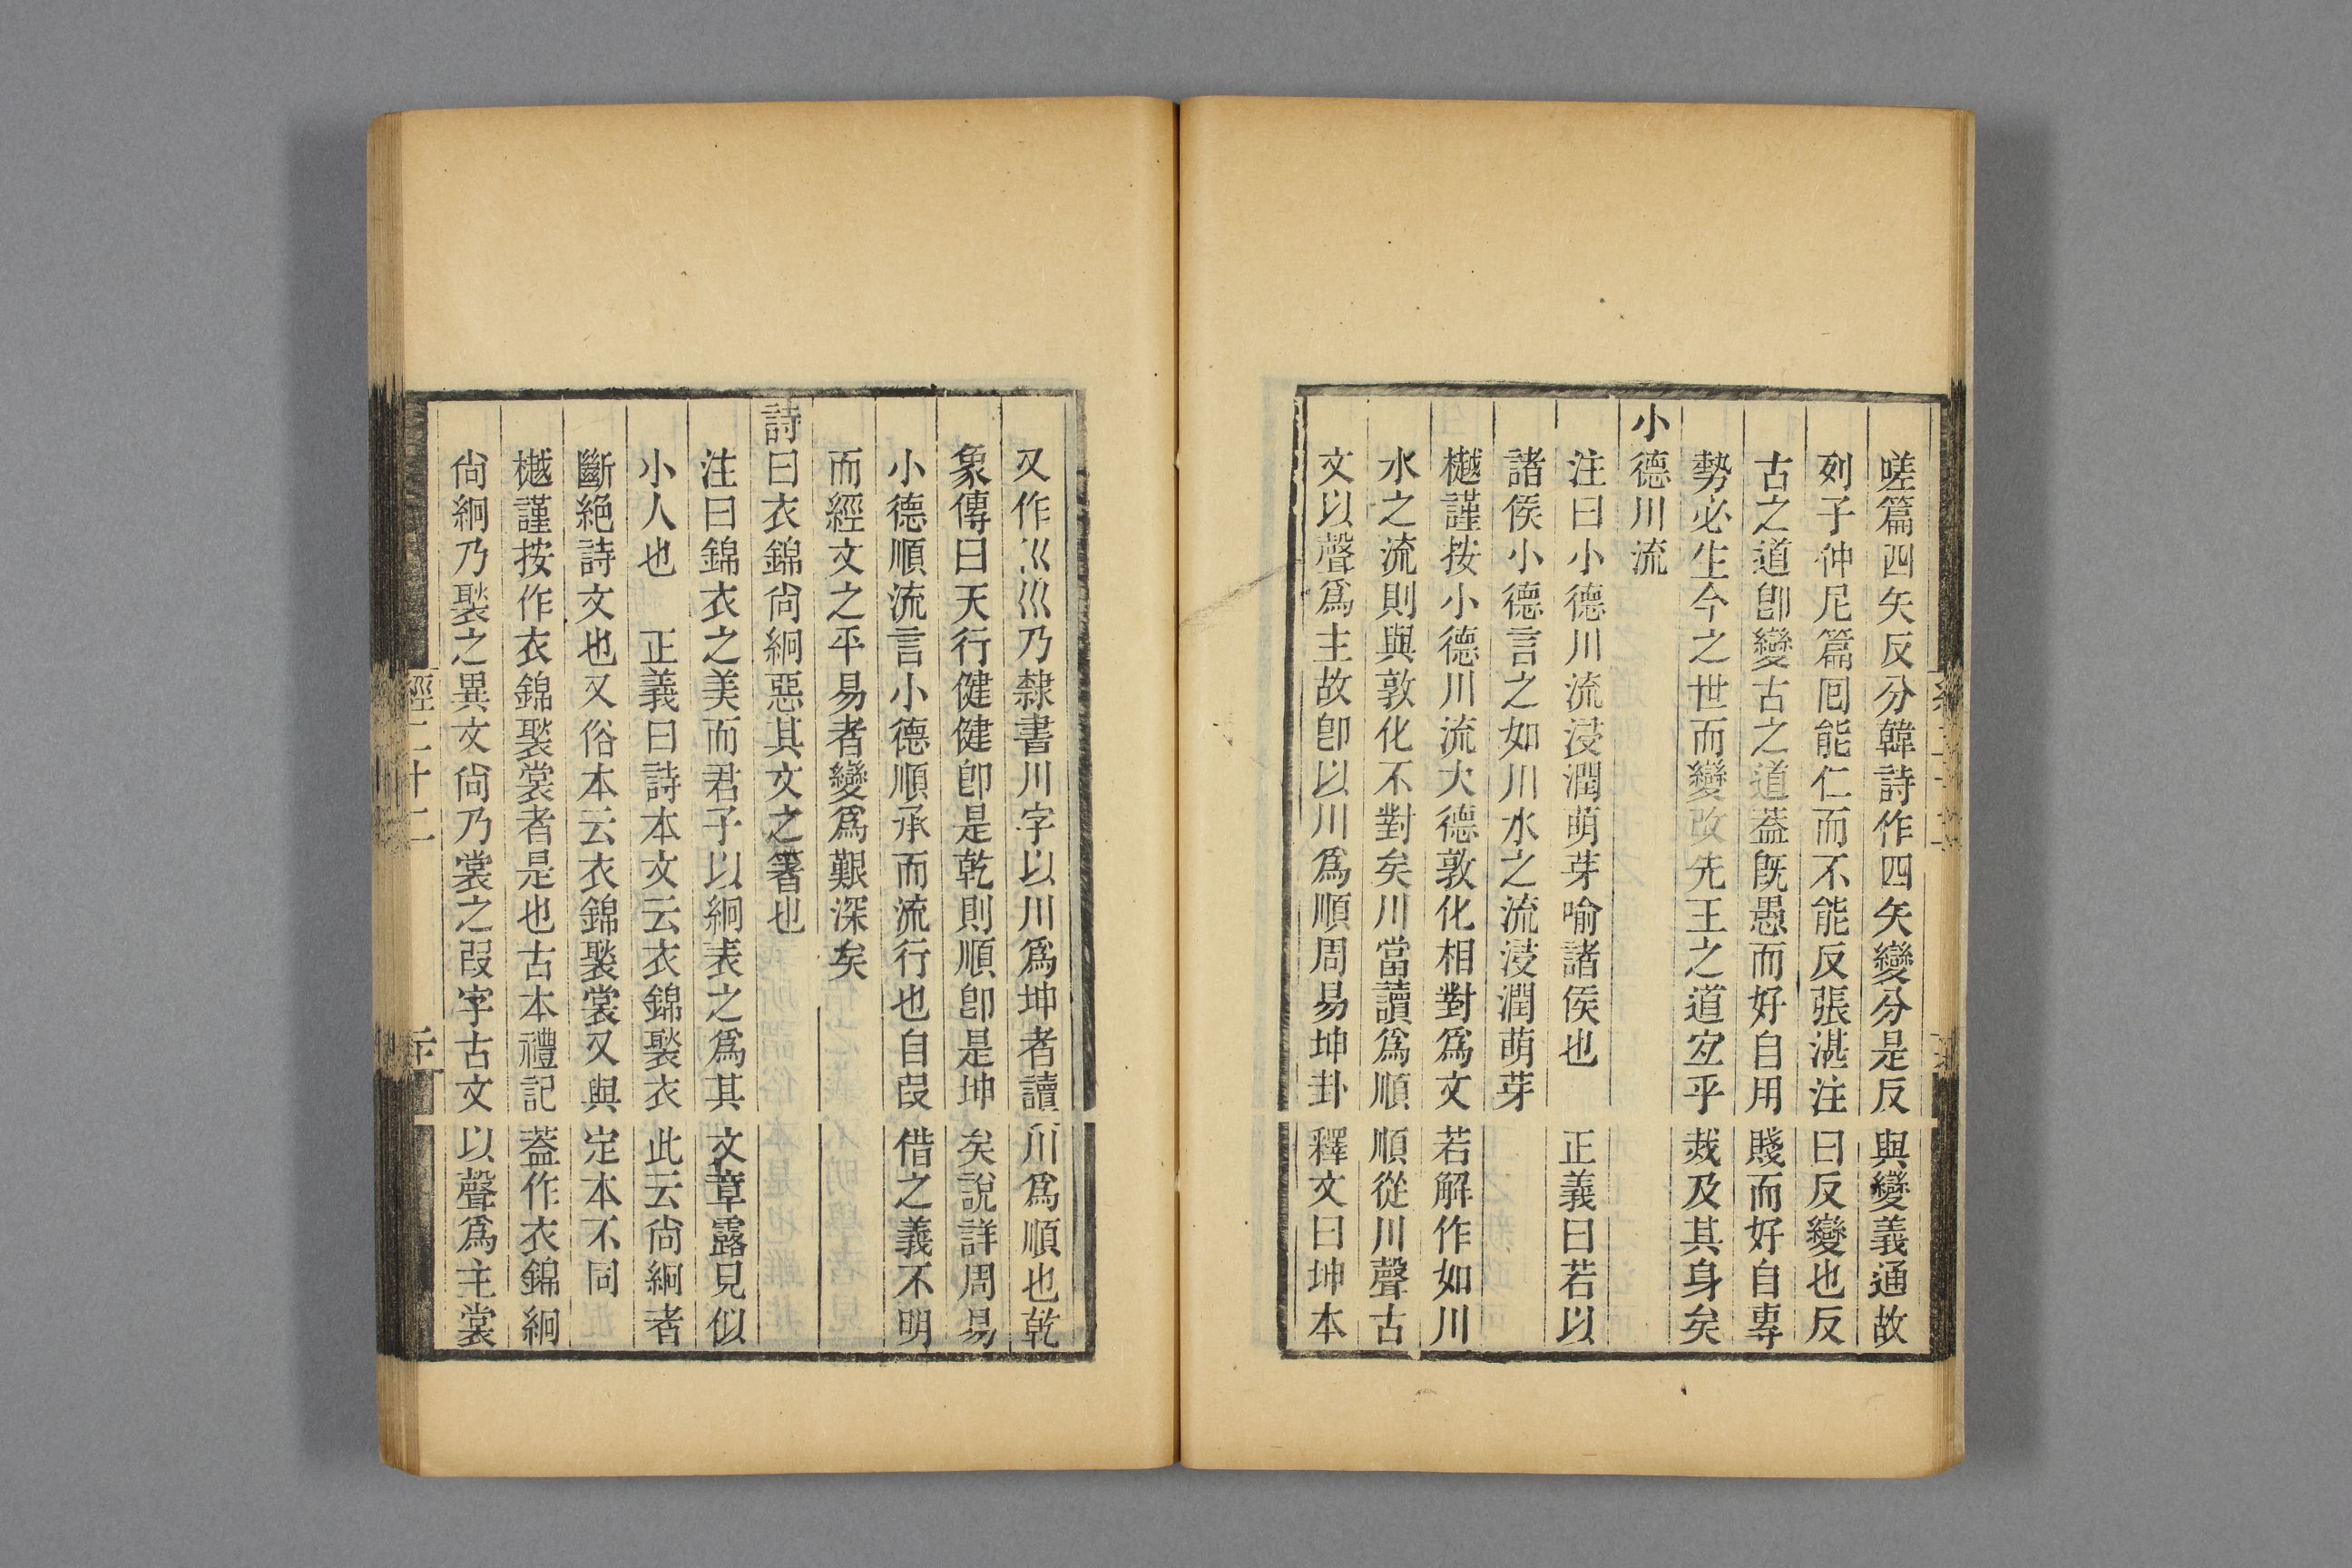 嗟篇四矢反兮韓詩作四矢變兮是反與變義通故
列子仲尼篇回能仁而不能反張湛注曰反變也反
古之道卽變古之道蓋旣愚而好自用賤而好自專
勢必生今之世而變改先王之道宜乎烖及其身矣
小德川流
注曰小德川流浸潤萌芽喻諸侯也　正義曰若以
諸侯小德言之如川水之流浸潤萌芽
樾謹按小德川流大德敦化相對爲文若解作如川
水之流則與敦化不對矣川當讀爲順順從川聲古
文以聲爲主故卽以川爲順周易坤卦釋文曰坤本
又作巛巛乃隸書川字以川爲坤者讀川爲順也乾
象傳曰天行健健卽是乾則順卽是坤矣說詳周易
小德順流言小德順承而流行也自叚借之義不明
而經文之平易者變爲艱深矣
詩曰衣錦尙絅惡其文之箸也
注曰錦衣之美而君子以絅表之爲其文章露見似
小人也　正義曰詩本文云衣錦褧衣此云尙絅者
斷絕詩文也又俗本云衣錦褧裳又與定本不同
樾謹按作衣錦褧裳者是也古本禮記蓋作衣錦絅
尙絅乃褧之異文尙乃裳之叚字古文以聲爲主裳
經二十二